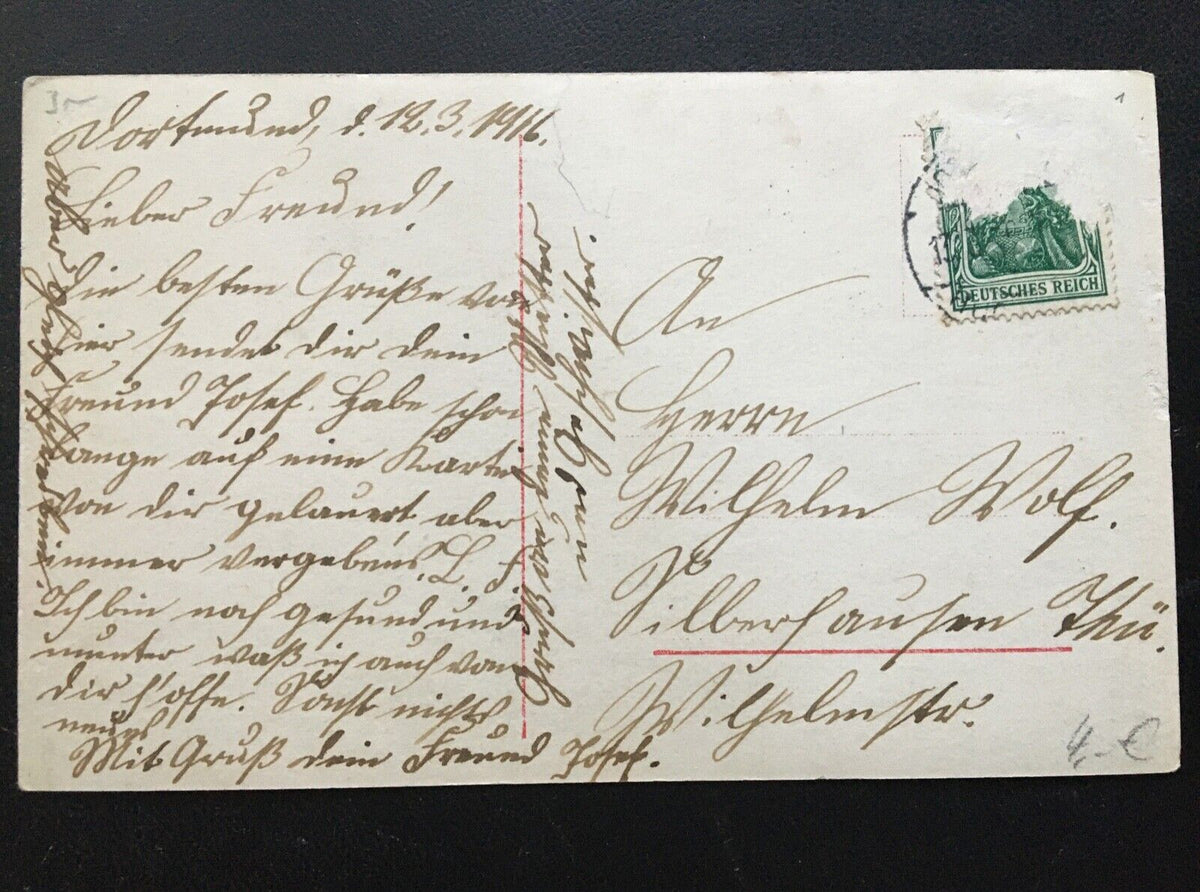 Dortmund, d. 12.3.1916.
Lieber Freund!
Die besten Grüße von
hier sendet dir dein
Freund Josef. Habe schon
lange auf eine Karte
von dir gelauert aber
immer vergebens. L. F.
Ich bin noch gesund und
munter waß ich auch von
dir hoffe. Sonst nichts
neues
Mit Gruß dein Freund Josef.
Gruß an deine Mutter
und Geschwister.
Aber gleich schreiben
An
Herrn
Wilhelm Wolf.
Silberhausen Thü.
Wilhelmstr.
DEUTSCHES REICH
13
4,-€
1